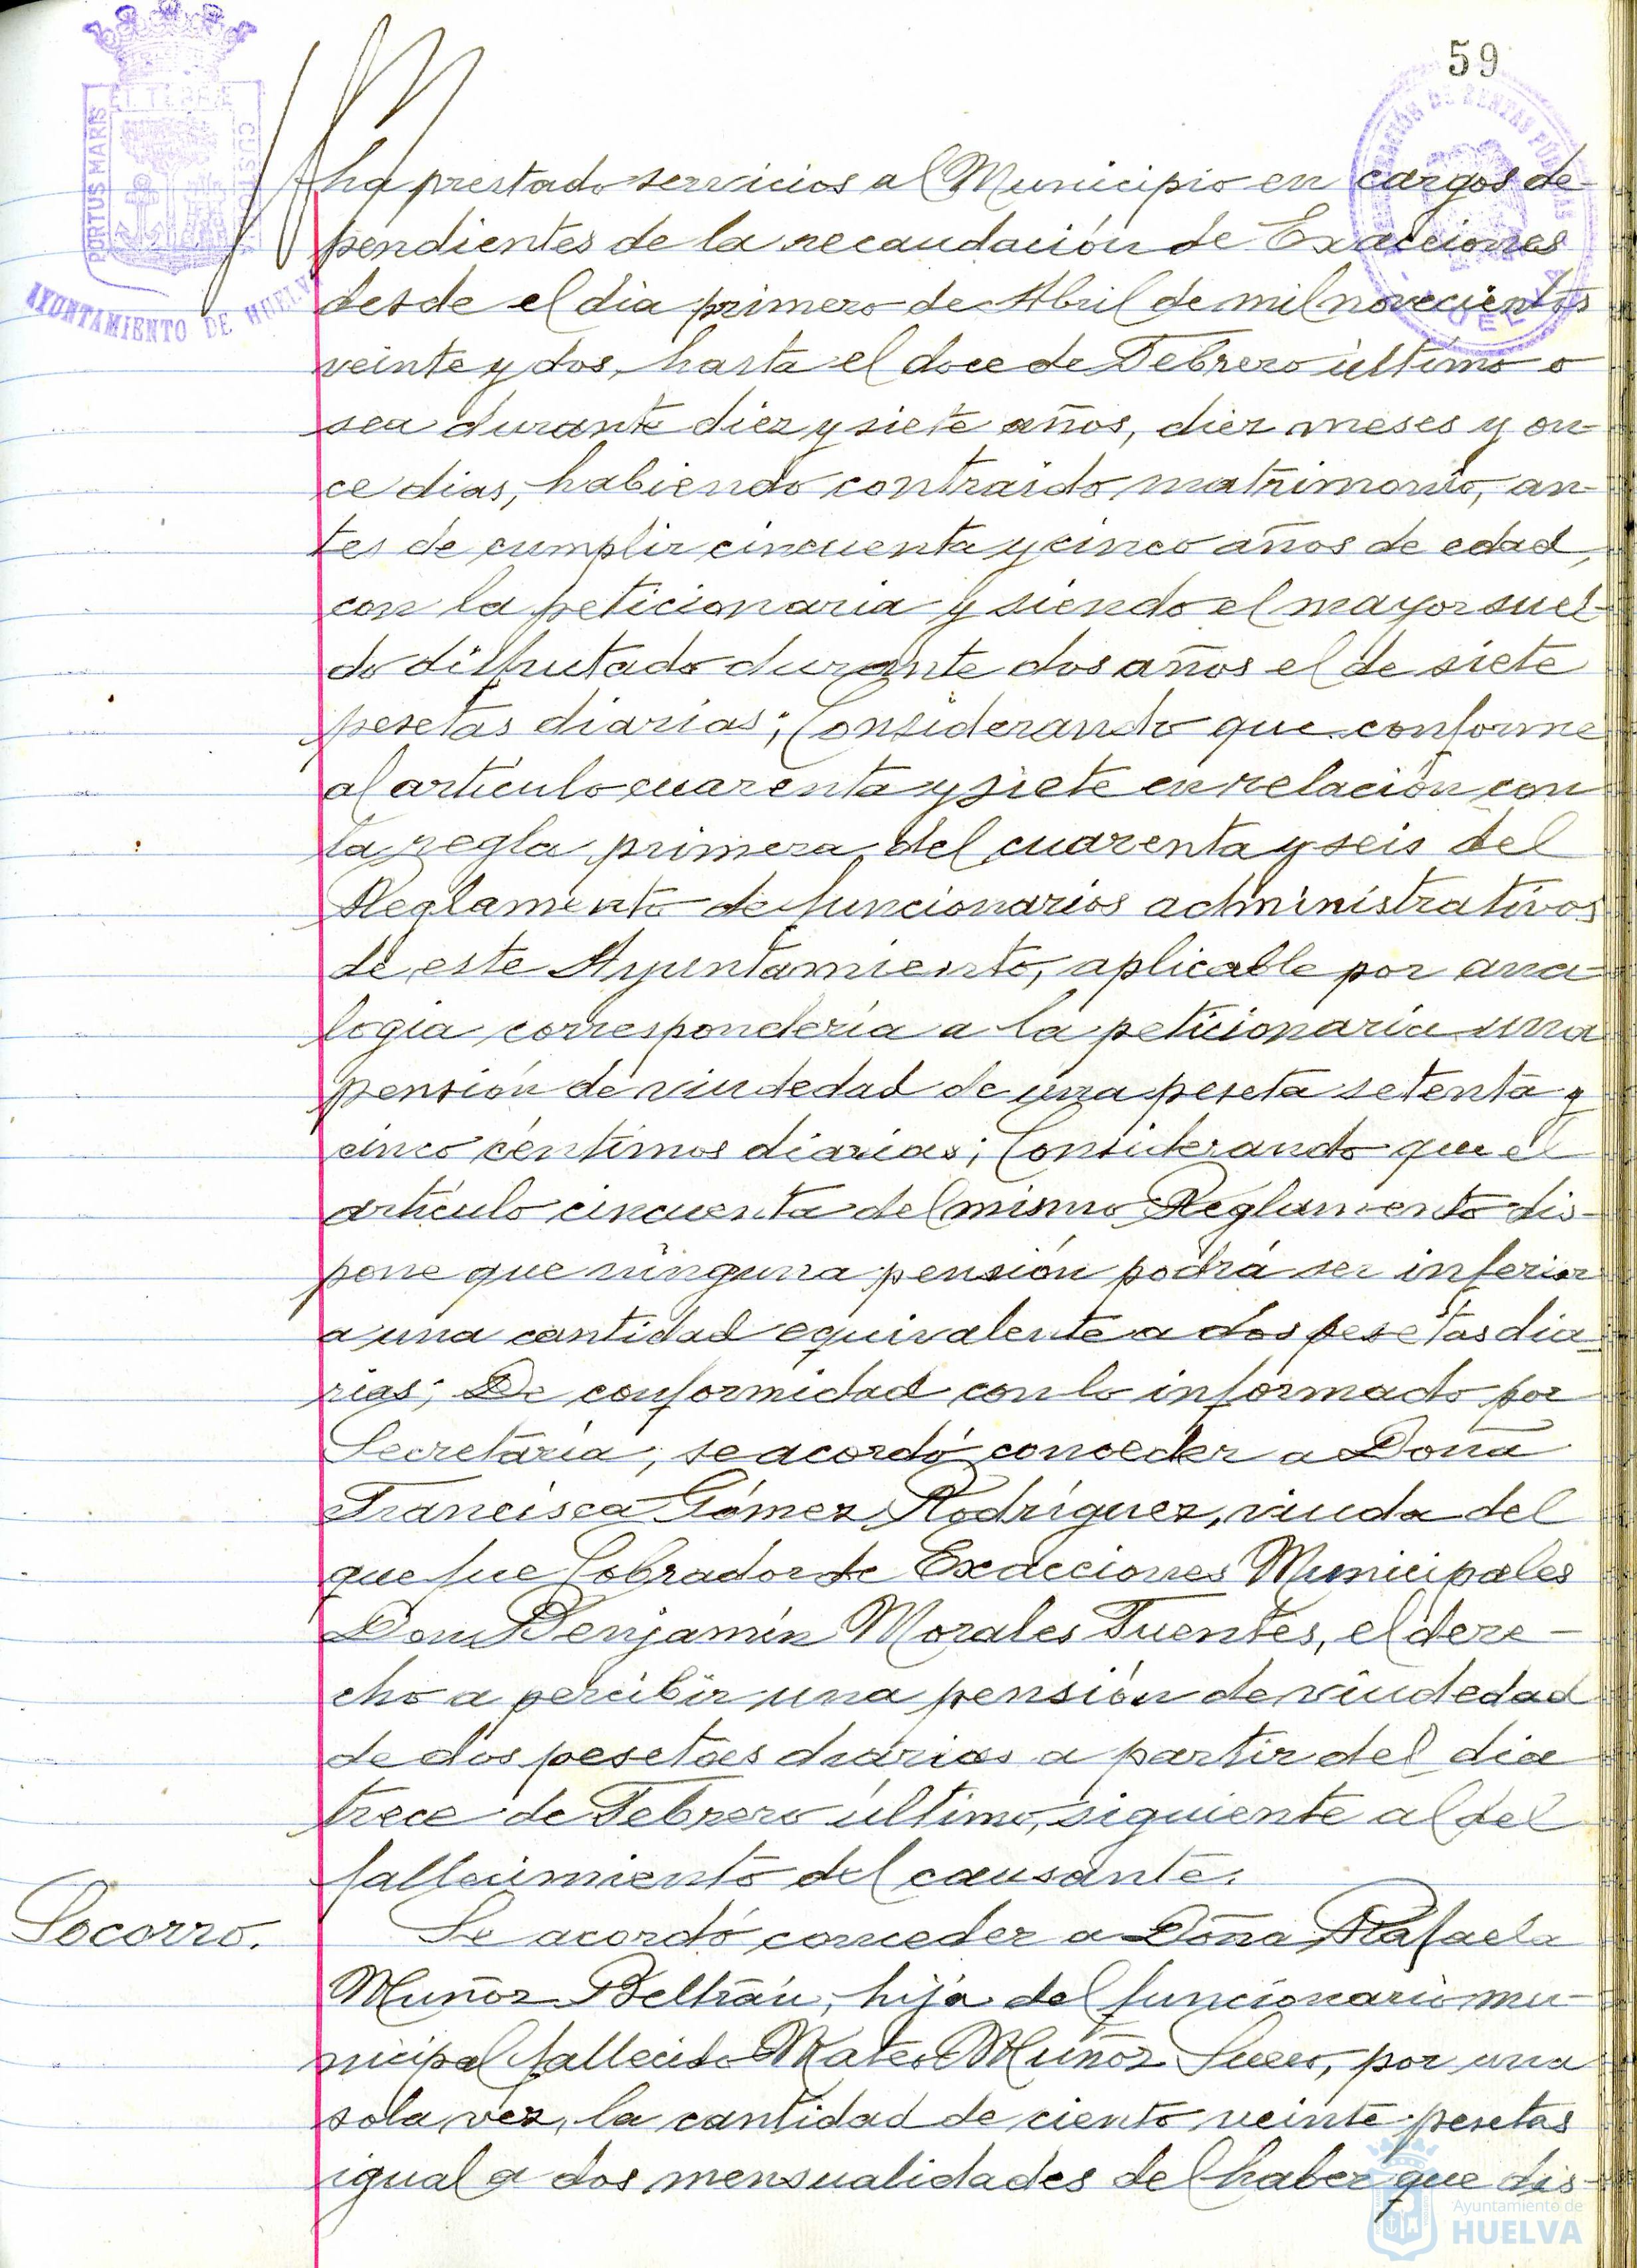 59
EL TERRÆ
PORTUS MARIS
CUSTODIA
AYUNTAMIENTO DE HUELVA
ha prestado servicios al Municipio en cargos de-
pendientes de la recaudación de Exacciones
desde el dia primero de Abril de mil novecientos
veinte y dos, hasta el doce de Febrero último o
sea durante diez y siete años, diez meses y on-
ce dias, habiendo contraido matrimonio, an-
tes de cumplir cincuenta y cinco años de edad,
con la peticionaria y siendo el mayor suel-
do disfrutado durante dos años el de siete
pesetas diarias; Considerando que conforme
al artículo cuarenta y siete en relación con
la regla primera del cuarenta y seis del
Reglamento de funcionarios administrativos
de este Ayuntamiento, aplicable por ana-
logia correspondería a la peticionaria una
pensión de viudedad de una peseta setenta y
cinco céntimos diarias; Considerando que el
artículo cincuenta del mismo Reglamento dis-
pone que ninguna pensión podrá ser inferior
a una cantidad equivalente a dos pesetas dia-
rias; De conformidad con lo informado por
Secretaría, se acordó conceder a Doña
Francisca Gómez Rodríguez, viuda del
que fue Cobrador de Exacciones Municipales
Don Benjamín Morales Fuentes, el dere-
cho a percibir una pensión de viudedad
de dos pesetas diarias a partir del dia
trece de Febrero último, siguiente al del
fallecimiento del causante.
Socorro.
Se acordó conceder a Doña Rafaela
Muñoz Beltrán, hija del funcionario mu-
nicipal fallecido Mateo Muñoz, por una
sola vez, la cantidad de ciento veinte pesetas
igual a dos mensualidades del haber que dis-
Ayuntamiento de
HUELVA